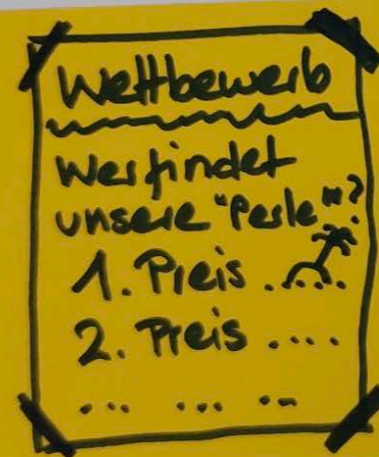 Wettbewerb
Wer findet
unsere "Perle"?
1. Preis ....
2. Preis ....
... ... ...